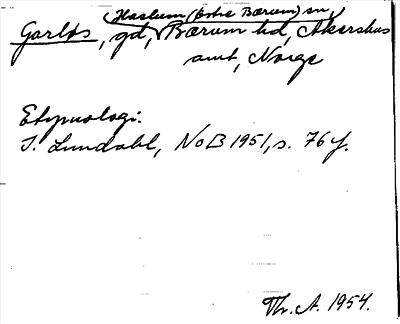 (Haslum (Østre Bærum) sn,
Garløs, gd, Bærum hd, Akershus
amt, Norge
Etymologi:
I. Lundahl, NoB 1951, s. 76 f.
Th. A. 1954.